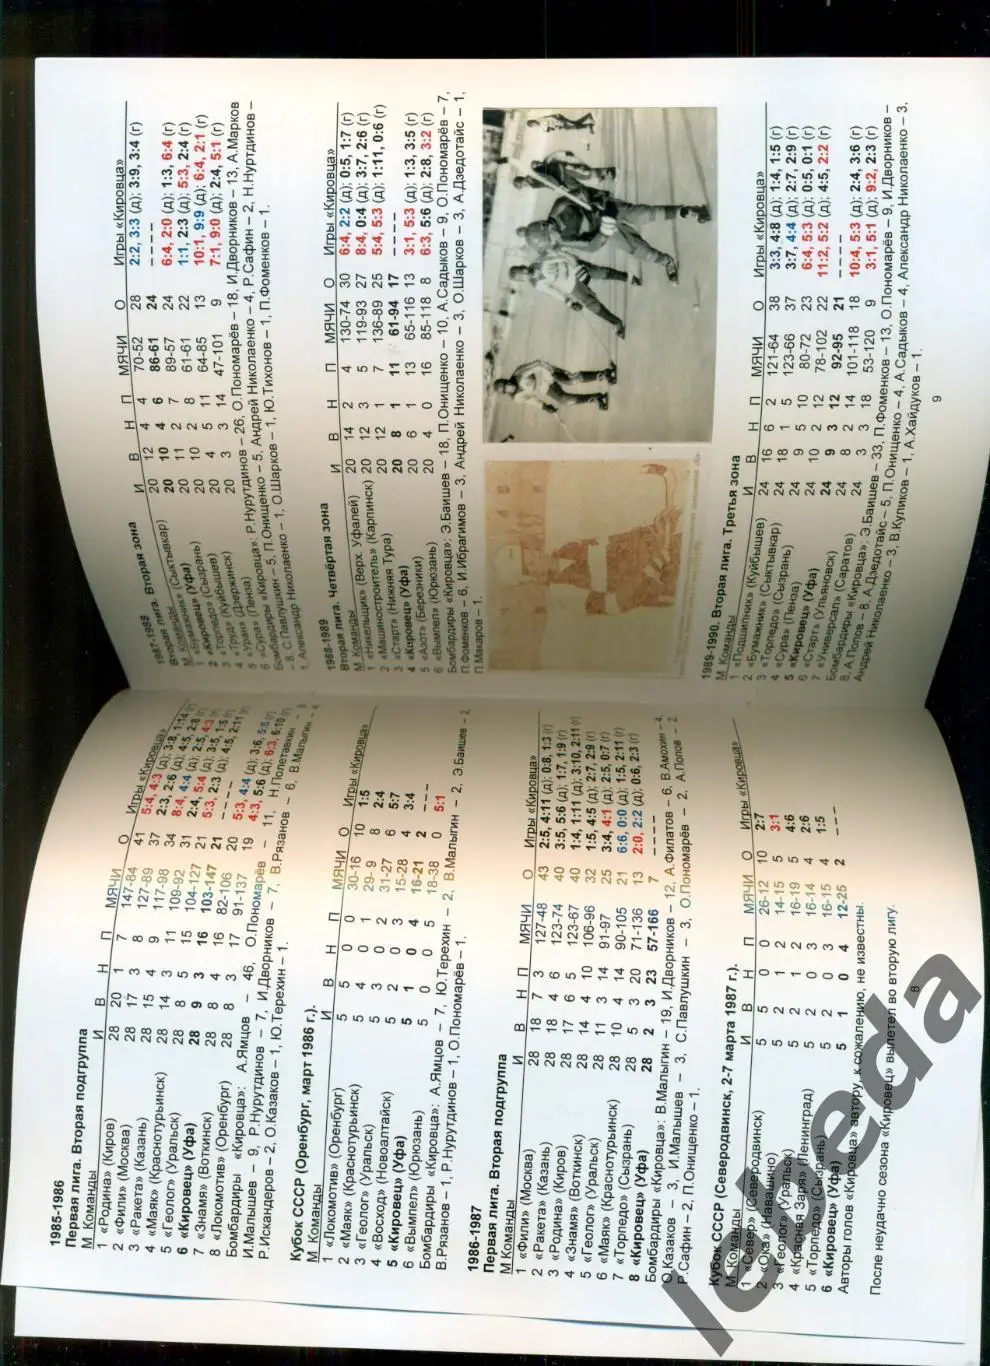 1985-1986
Первая лига. Вторая подгруппа
М Команды И В Н П МЯЧИ О Игры «Кировца»
1 «Родина» (Киров) 28 20 1 7 147-84 41 5:4, 4:3 (д); 3:8, 1:14 (г)
2 «Фили» (Москва) 28 17 3 8 127-89 37 2:3, 2:6 (д); 4:5, 2:8 (г)
3 «Ракета» (Казань) 28 15 4 9 117-98 34 8:4, 4:4 (д); 2:5, 4:3 (г)
4 «Маяк» (Краснотурьинск) 28 14 3 11 109-92 31 2:4, 5:4 (д); 3:5, 1:5 (г)
5 «Геолог» (Уральск) 28 8 5 15 104-127 21 5:3, 2:3 (д); 4:5, 2:11 (г)
6 «Кировец» (Уфа) 28 9 3 16 103-147 21 ----
7 «Знамя» (Воткинск) 28 8 4 16 82-106 20 5:3, 4:4 (д); 3:6, 5:5 (г)
8 «Локомотив» (Оренбург) 28 8 3 17 91-137 19 4:3, 5:6 (д); 6:3, 6:10 (г)
Бомбардиры «Кировца»: А.Ямцов – 46, О.Пономарёв – 11, Н.Полетавкин – 9
И.Малышев – 9, Р.Нурутдинов – 7, И.Дворников – 7, В.Рязанов – 6, В.Малыгин – 4,
Р.Искандеров – 2, О.Казаков – 1, Ю.Терехин – 1.
Кубок СССР (Оренбург, март 1986 г.).
М Команды И В Н П МЯЧИ О Игры «Кировца»
1 «Локомотив» (Оренбург) 5 5 0 0 30-16 10 1:5
2 «Маяк» (Краснотурьинск) 5 4 0 1 29-9 8 2:4
3 «Геолог» (Уральск) 5 3 0 2 31-27 6 5:7
4 «Восход» (Новоалтайск) 5 2 0 3 15-28 4 3:4
5 «Кировец» (Уфа) 5 1 0 4 16-21 2 ----
6 «Вымпел» (Юрюзань) 5 0 0 5 18-38 0 5:1
Бомбардиры «Кировца»: А.Ямцов – 7, Ю.Терехин – 2, В.Малыгин – 2, Э.Баишев – 2,
В.Рязанов – 1, Р.Нурутдинов – 1, О.Пономарёв – 1.
1986-1987
Первая лига. Вторая подгруппа
М Команды И В Н П МЯЧИ О Игры «Кировца»
1 «Фили» (Москва) 28 18 7 3 127-48 43 2:5, 4:11 (д); 0:8, 1:3 (г)
2 «Ракета» (Казань) 28 18 4 6 123-74 40 3:5, 5:6 (д); 1:7, 1:9 (г)
3 «Родина» (Киров) 28 17 6 5 123-67 40 1:4, 1:11 (д); 3:10, 2:11 (г)
4 «Знамя» (Воткинск) 28 14 4 10 106-96 32 1:5, 4:5 (д); 2:7, 2:9 (г)
5 «Геолог» (Уральск) 28 11 3 14 91-97 25 3:4, 4:1 (д); 2:5, 0:7 (г)
6 «Маяк» (Краснотурьинск) 28 10 4 14 90-105 21 6:6, 0:0 (д); 1:5, 2:11 (г)
7 «Торпедо» (Сызрань) 28 5 3 20 71-136 13 2:0, 2:2 (д); 0:6, 2:3 (г)
8 «Кировец» (Уфа) 28 2 3 23 57-166 7 ----
Бомбардиры «Кировца»: В.Малыгин – 19, И.Дворников – 12, А.Филатов – 6, В.Амохин – 4,
О.Казаков – 3, И.Малышев – 3, С.Павлушкин – 3, О.Пономарёв – 2, А.Попов – 2,
Р.Сафин – 2, П.Онищенко – 1.
Кубок СССР (Северодвинск, 2-7 марта 1987 г.).
М Команды И В Н П МЯЧИ О Игры «Кировца»
1 «Север» (Северодвинск) 5 5 0 0 26-12 10 2:7
2 «Ока» (Навашино) 5 2 1 2 14-15 5 3:1
3 «Геолог» (Уральск) 5 2 1 2 16-19 5 4:6
4 «Красная Заря» (Ленинград) 5 2 0 3 16-14 4 2:6
5 «Торпедо» (Сызрань) 5 2 0 3 16-15 4 1:5
6 «Кировец» (Уфа) 5 1 0 4 12-25 2 ----
Авторы голов «Кировца» автору, к сожалению, не известны.
После неудачно сезона «Кировец» вылетел во вторую лигу.
8
1987-1988
Вторая лига. Вторая зона
М Команды И В Н П МЯЧИ О Игры «Кировца»
1 «Бумажник» (Сыктывкар) 20 12 4 4 70-52 28 2:2, 3:3 (д); 3:9, 3:4 (г)
«Кировец» (Уфа) 20 10 4 6 86-61 24 ----
«Торпедо» (Сызрань) 20 11 2 7 89-57 24 6:4, 2:0 (д); 1:3, 6:4 (г)
«Труд» (Куйбышев) 20 10 2 8 61-61 22 1:1, 2:3 (д); 5:3, 2:4 (г)
4 «Уран» (Дзержинск) 20 4 5 11 64-85 13 10:1, 9:9 (г); 6:4, 2:1 (г)
6 «Сура» (Пенза) 20 3 3 14 47-101 9 7:1, 9:0 (д); 2:4, 5:1 (г)
Бомбардиры «Кировца»: Р.Нурутдинов – 26, О.Пономарёв – 18, И.Дворников – 13, А.Марков
– 8, С.Павлушкин – 5, П.Онищенко – 5, Андрей Николаенко – 4, Р.Сафин – 2, Н.Нуртдинов –
1, Александр Николаенко – 1, О.Шарков – 1, Ю.Тихонов – 1, П.Фоменков – 1.
1988-1989
Вторая лига. Четвёртая зона
М Команды И В Н П МЯЧИ О Игры «Кировца»
1 «Никельщик» (Верх. Уфалей) 20 14 2 4 130-74 30 6:4, 2:2 (д); 0:5, 1:7 (г)
2 «Машиностроитель» (Карпинск) 20 12 3 5 119-93 27 8:4, 0:4 (д); 3:7, 2:6 (г)
3 «Старт» (Нижняя Тура) 20 12 1 7 136-89 25 5:4, 5:3 (д); 1:11, 0:6 (г)
4 «Кировец» (Уфа) 20 8 1 11 61-94 17 ----
5 «Азот» (Березники) 20 6 1 13 65-116 13 3:1, 5:3 (д); 1:3, 3:5 (г)
6 «Вымпел» (Юрюзань) 20 4 0 16 85-118 8 6:3, 5:6 (д); 2:8, 3:2 (г)
Бомбардиры «Кировца»: Э.Баишев – 18, П.Онищенко – 10, А.Садыков – 9, О.Пономарёв – 7,
П.Фоменков – 6, И.Ибрагимов – 3, Андрей Николаенко – 3, О.Шарков – 3, А.Дзедотайс – 1,
П.Макаров – 1.
1989-1990. Вторая лига. Третья зона
М Команды И В Н П МЯЧИ О Игры «Кировца»
1 «Подшипник» (Куйбышев) 24 16 6 2 121-64 38 3:3, 4:8 (д); 1:4, 1:5 (г)
2 «Бумажник» (Сыктывкар) 24 18 1 5 123-66 37 3:7, 4:4 (д); 2:7, 2:9 (г)
3 «Торпедо» (Сызрань) 24 9 5 10 80-72 23 6:4, 5:3 (д); 0:5, 0:1 (г)
4 «Сура» (Пенза) 24 10 2 12 78-102 22 11:2, 5:2 (д); 4:5, 2:2 (г)
5 «Кировец» (Уфа) 24 9 3 12 92-95 21 ----
6 «Старт» (Ульяновск) 24 8 2 14 101-118 18 10:4, 5:3 (д); 2:4, 3:6 (г)
7 «Универсал» (Саратов) 24 3 3 18 53-120 9 3:1, 5:1 (д); 9:2, 2:3 (г)
Бомбардиры «Кировца»: Э.Баишев – 33, П.Фоменков – 13, О.Пономарёв – 9, И.Дворников –
8, А.Попов – 8, А.Дзедотайс – 5, П.Онищенко – 4, А.Садыков – 4, Александр Николаенко – 3,
Андрей Николаенко – 3, В.Куликов – 1, А.Хайдуков – 1.
9